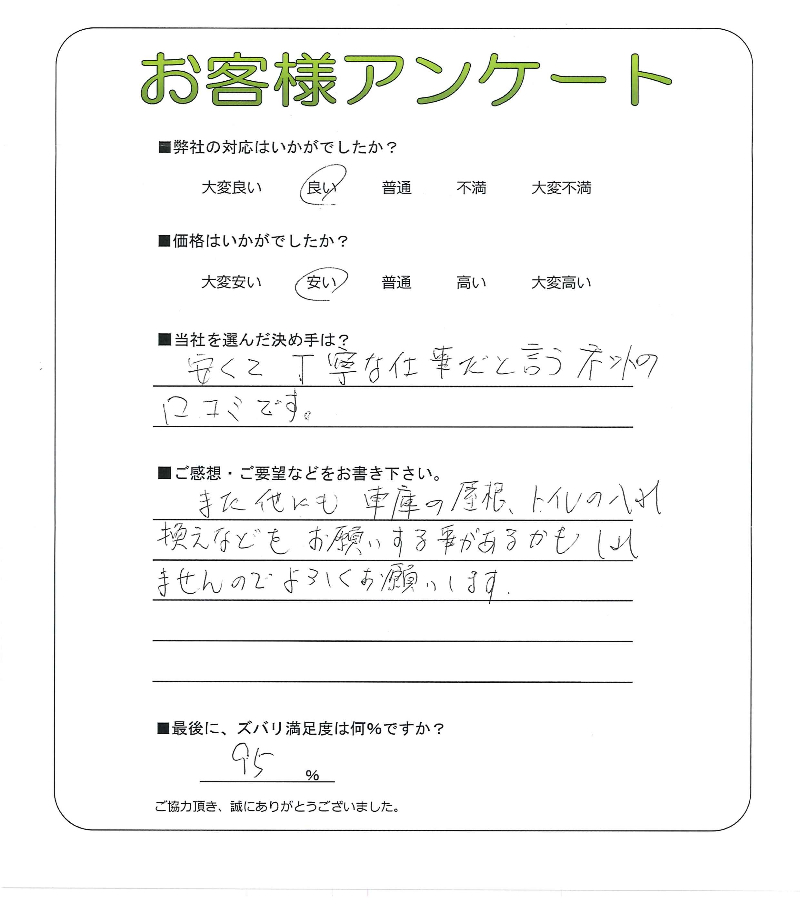 お客様アンケート
■弊社の対応はいかがでしたか？
大変良い 良い 普通 不満 大変不満
■価格はいかがでしたか？
大変安い 安い 普通 高い 大変高い
■当社を選んだ決め手は？
安くて丁寧な仕事だと言うネットの
口コミです。
■ご感想・ご要望などをお書き下さい。
また他にも車庫の屋根、トイレの入れ
換えなどをお願いする事があるかもしれ
ませんのでよろしくお願いします.
■最後に、ズバリ満足度は何%ですか？
95 %
ご協力頂き、誠にありがとうございました。